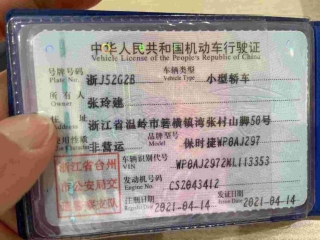 中华人民共和国机动车行驶证
Vehicle License of the People's Republic of China
号牌号码 浙J52G2B 车辆类型 小型轿车
Plate No. Vehicle Type
所有人 张玲建
Owner
住址 浙江省温岭市箬横镇湾张村山脚50号
使用性质 非营运 品牌型号 保时捷WP0AJ297
Model
浙江省台州 车辆识别代号 WP0AJ2972ML113353
VIN
市公安局交 发动机号码 CSZ043412
Engine No.
通警察支队 注册日期 2021-04-14 发证日期 2021-04-14